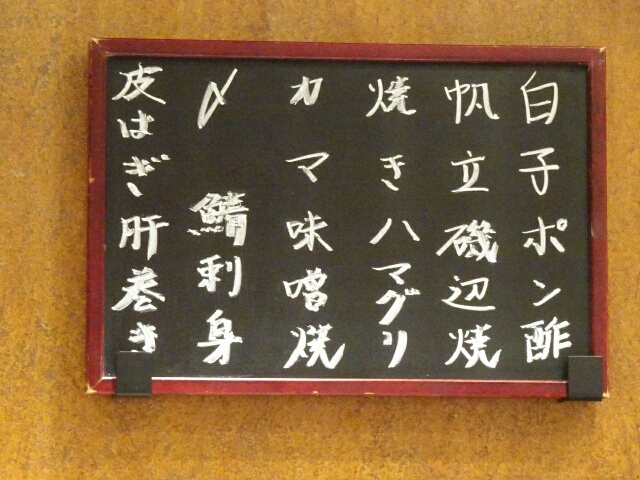 白子ポン酢
帆立磯辺焼
焼きハマグリ
カマ味噌焼
〆鯖刺身
皮はぎ肝巻き